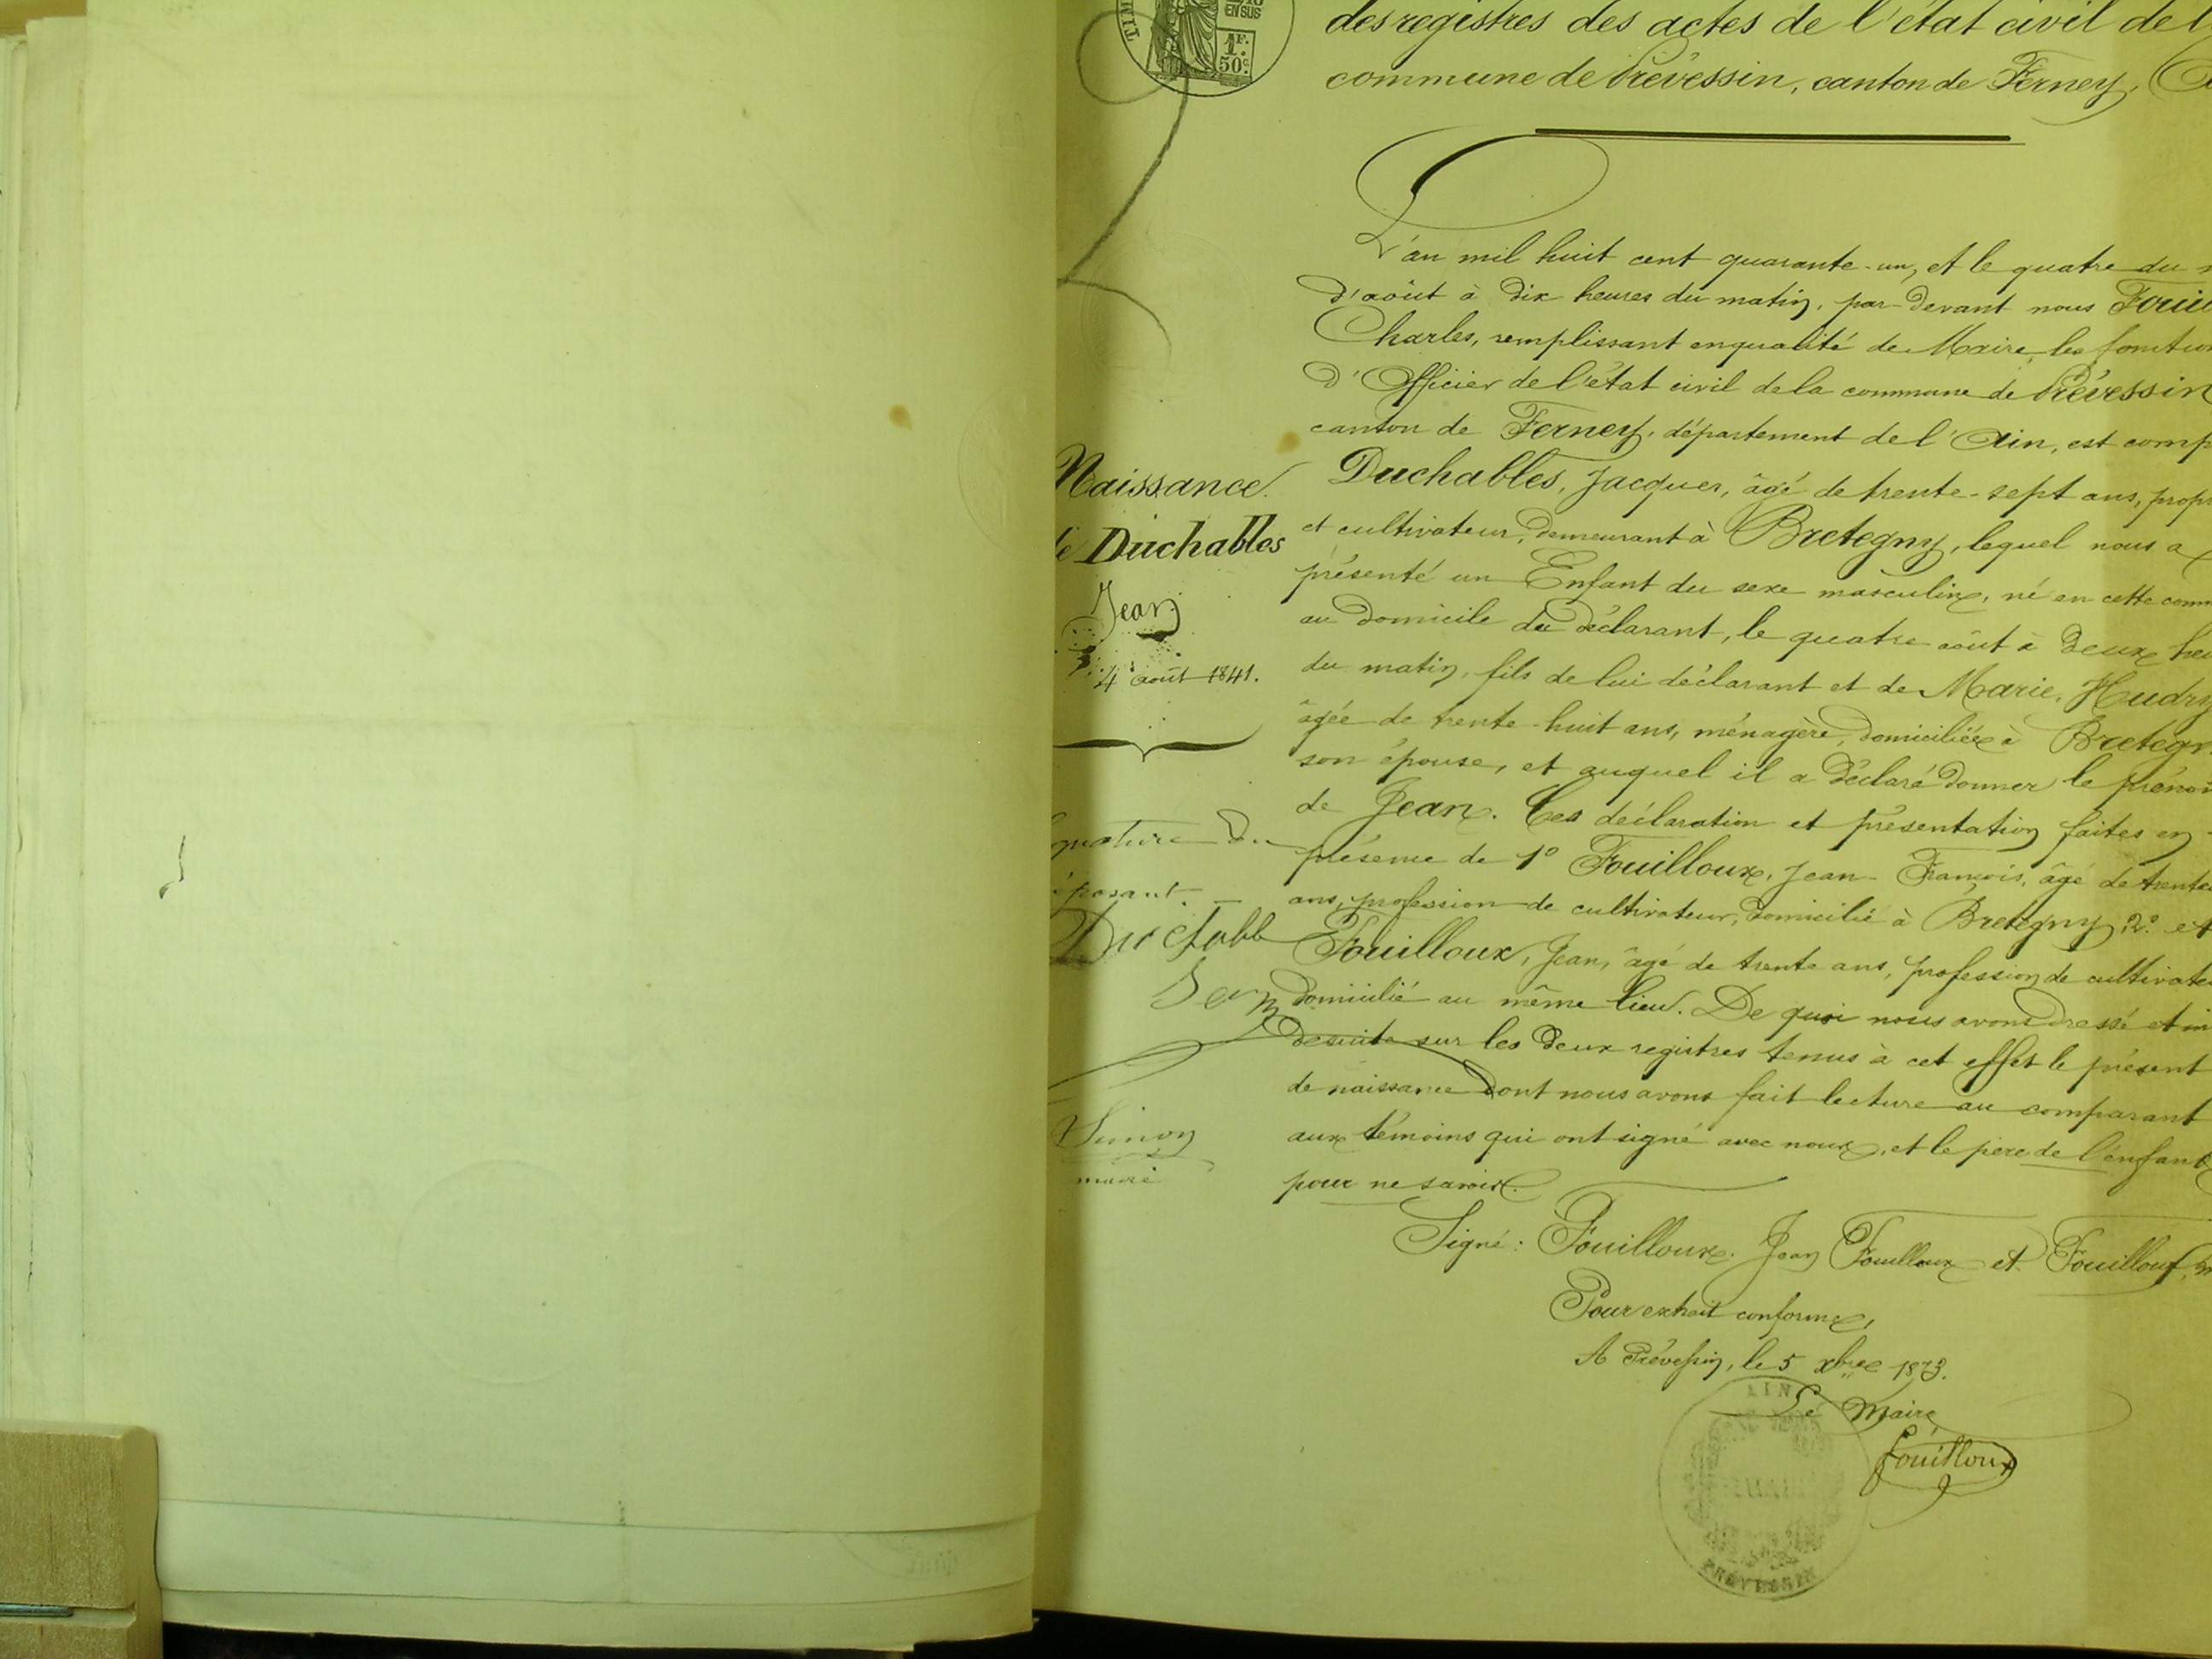 TIM
EN SUS
1F.
50c.
des registres des actes de l'état civil de l
commune de Prévessin, canton de Ferney, (A
L'an mil huit cent quarante-un, et le quatre du m
d'août à dix heures du matin, par-devant nous Fouil
Charles, remplissant en qualité de Maire, les fonction
d'Officier de l'état civil de la commune de Prévessin
canton de Ferney, département de l'Ain, est comp
Duchables, Jacques, âgé de trente-sept ans, propr
et cultivateur, demeurant à Bretegny, lequel nous a
présenté un Enfant du sexe masculin, né en cette comm
au domicile du déclarant, le quatre août à deux heu
du matin, fils de lui déclarant et de Marie, Hudry
âgée de trente-huit ans, ménagère, domiciliée à Bretegn
son épouse, et auquel il a déclaré donner le prénom
de Jean. Ces déclaration et présentation faites en
présence de 1° Fouilloux, Jean-François, âgé de trente
ans, profession de cultivateur, domicilié à Bretegny, 2° et
Fouilloux, Jean, âgé de trente ans, profession de cultivateu
domicilié au même lieu. De quoi nous avons dressé et in
desuite sur les deux registres tenus à cet effet le présent
de naissance dont nous avons fait lecture au comparant
aux témoins qui ont signé avec nous, et le père de l'enfant
pour ne savoir.
Signé: Fouilloux. Jean Fouilloux et Fouilloux, m
Pour extrait conforme,
A Prévessin, le 5 xbre 1873.
Le Maire
Fouilloux
AIN
PRÉVESSIN
Naissance
de Duchables
Jean
4 août 1841.
gnature du
éposant.
Duchabl
Jean
Simon
maire